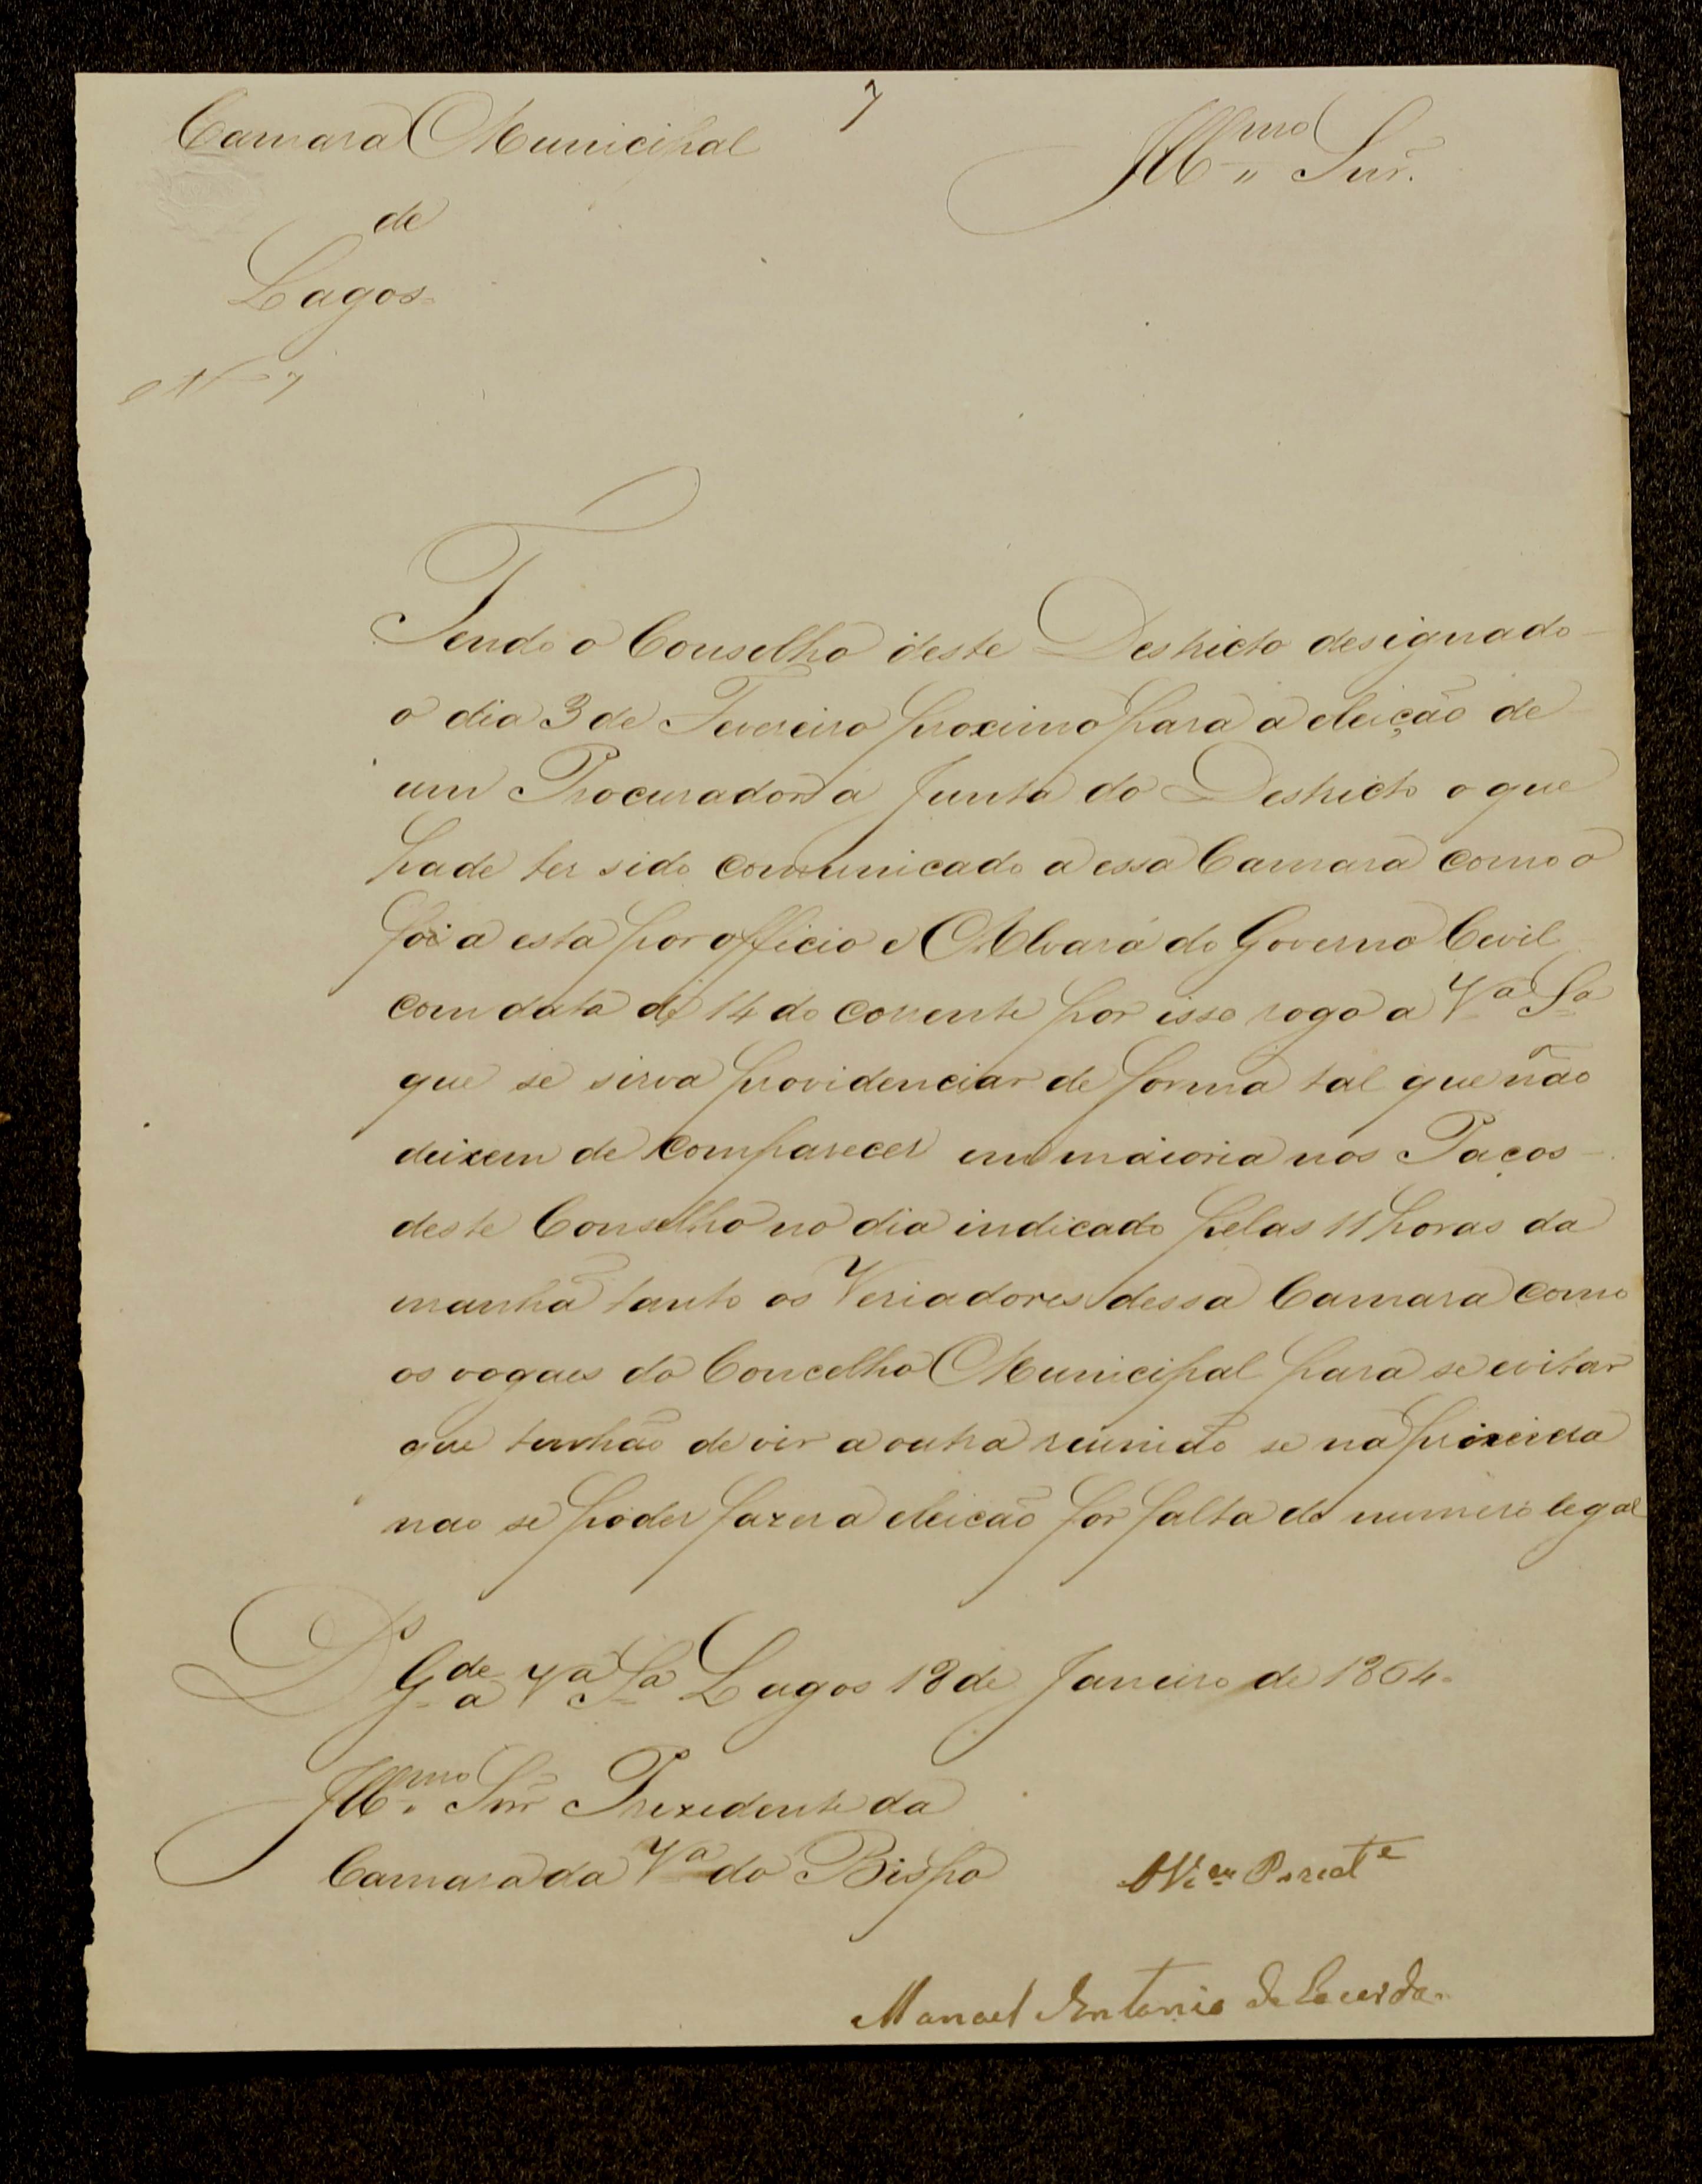 Camara Municipal
7
Illmo Snr.
de
Lagos
No 7
Tendo o Conselho deste Destricto designado
o dia 3 de Fevereiro proximo para a eleição de
um Procurador a Junta do Destricto o que
hade ter sido comunicado a essa Camara como o
foi a esta por officio e Alvará do Governo Civil
com data de 14 do corrente por isso rogo a Va Sa
que se sirva providenciar de forma tal que não
deixem de comparecer em maioria nos Paços
deste Conselho no dia indicado pelas 11 horas da
manhã tanto os Veriadores dessa Camara como
os vogaes do Concelho Municipal para se evitar
que tenhão de vir a outra reunião se na primeira
nao se poder fazer a eleicão por falta do numero legal
Ds Gde a Va Sa Lagos 18 de Janeiro de 1864
Illmo Snr Prezidente da
Camara da Va do Bispo
Manoel Antonio de Lacerda